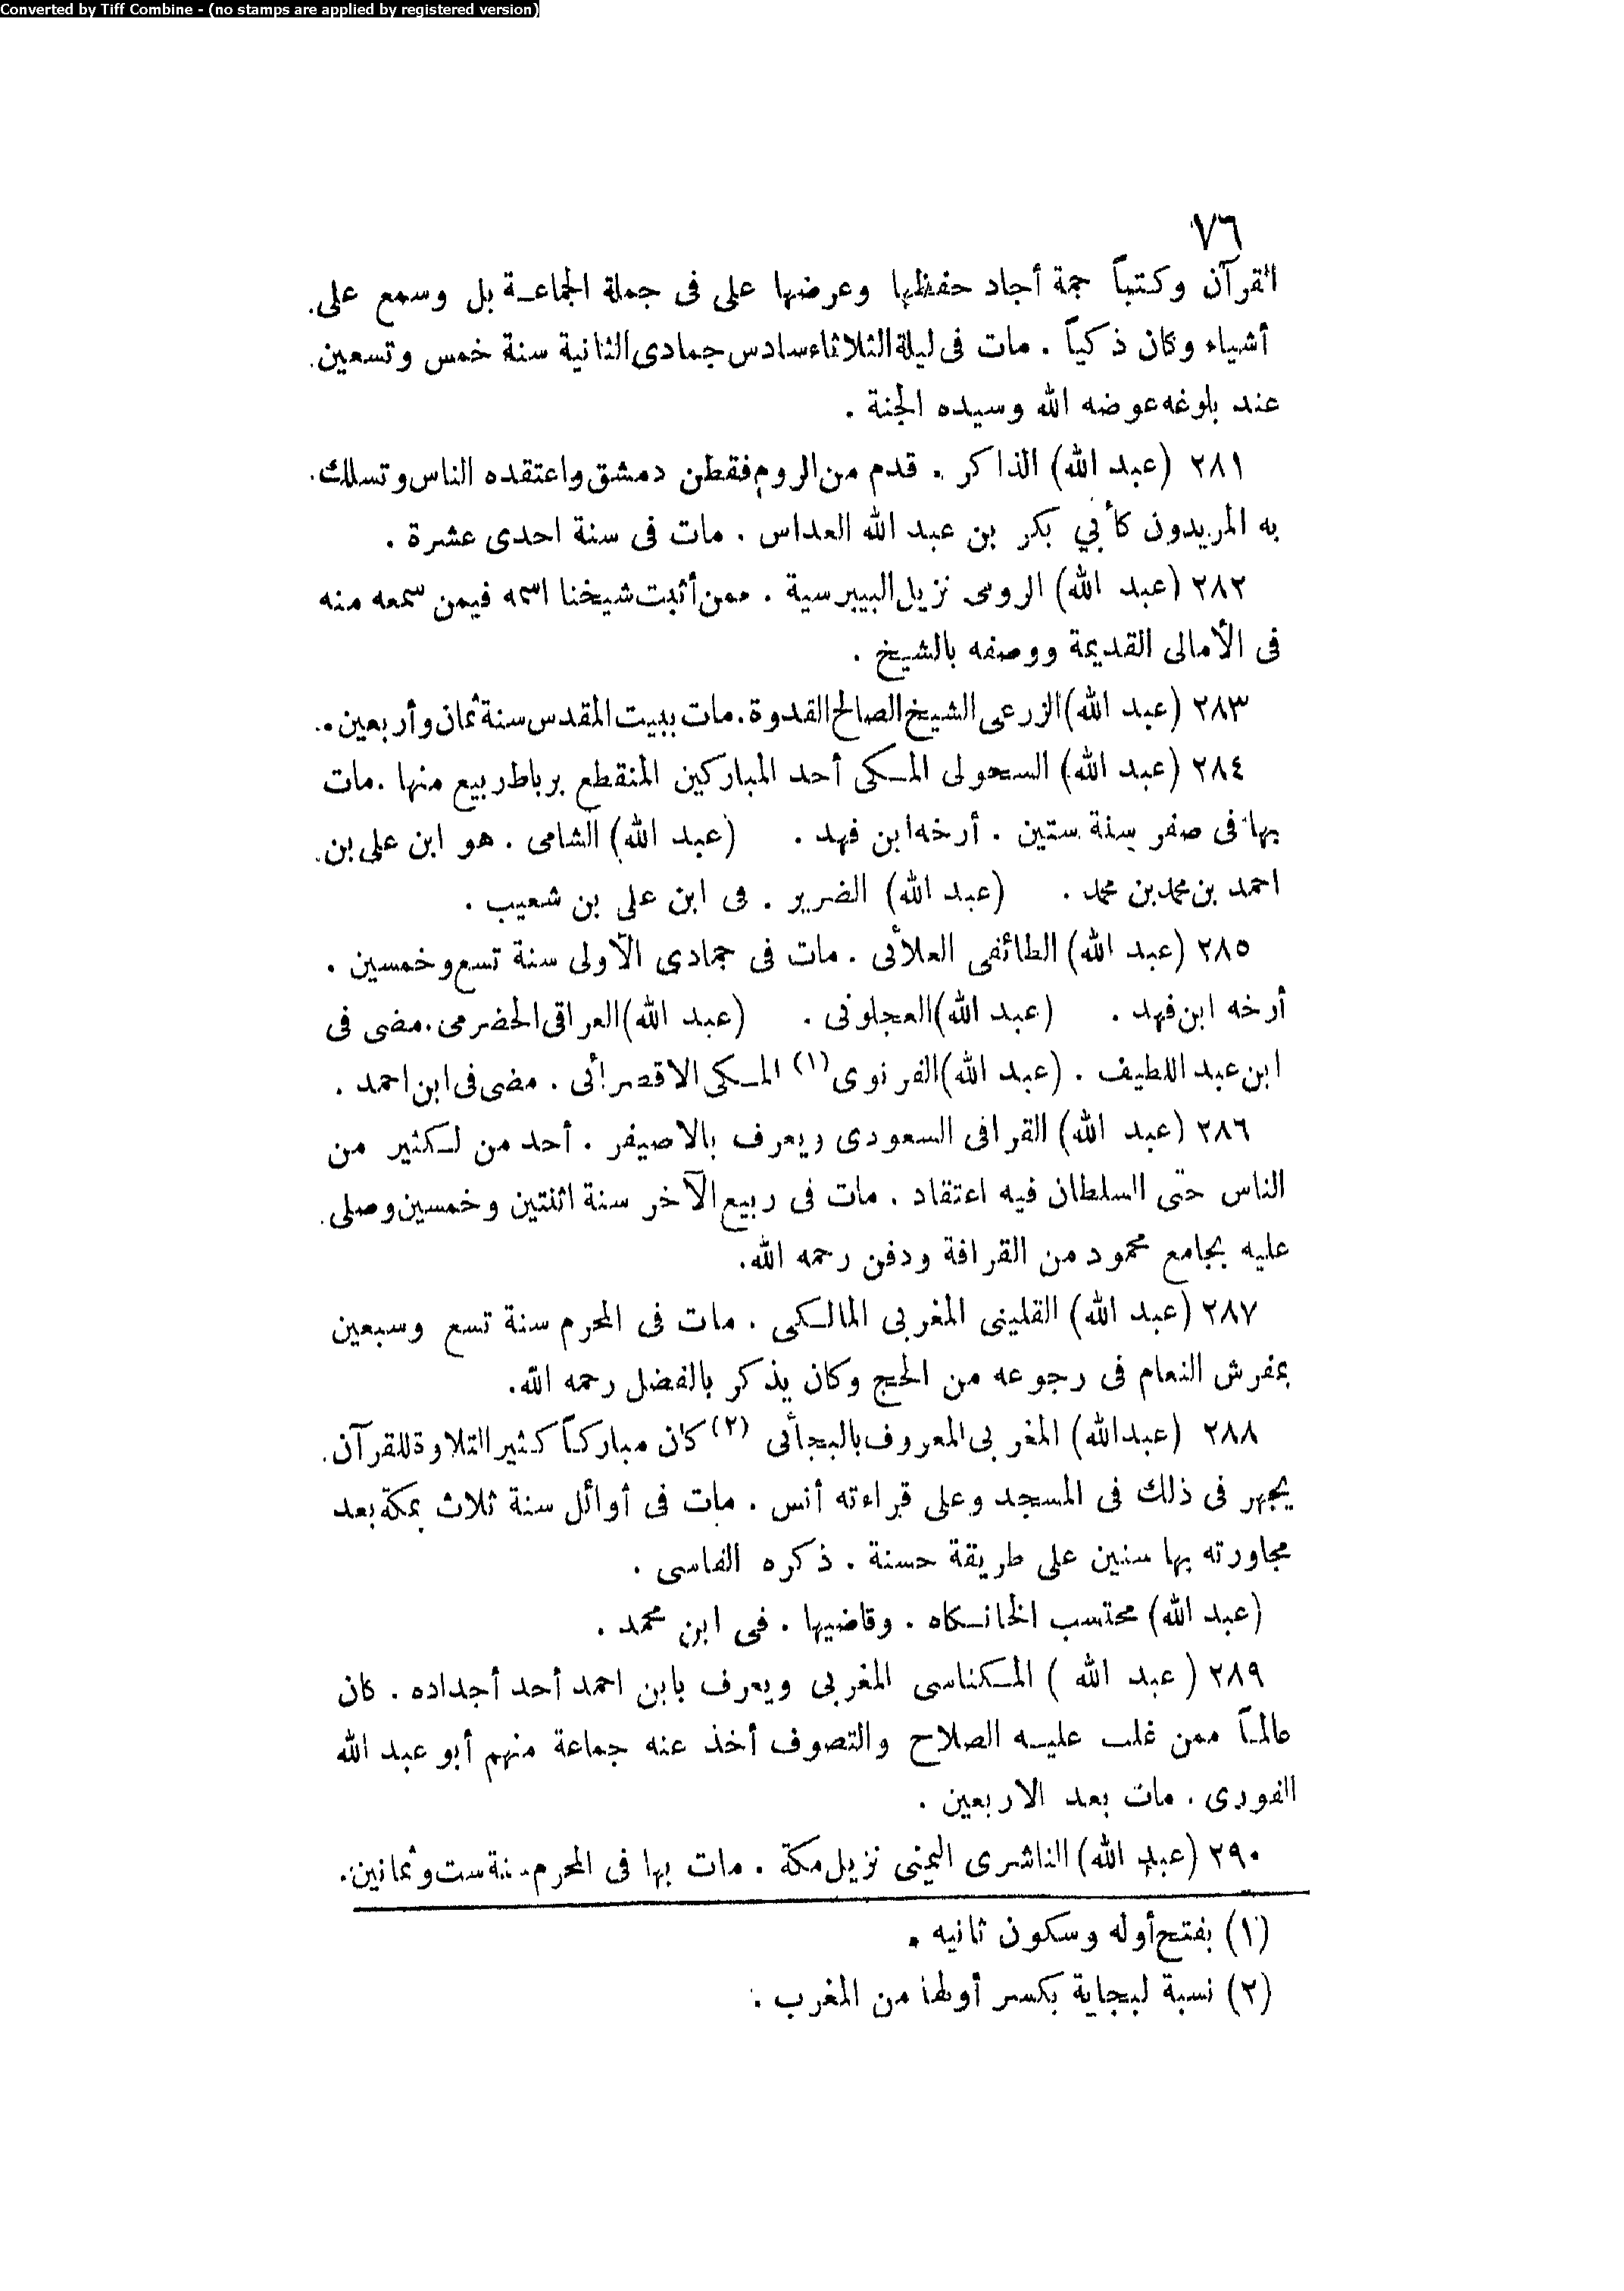 Converted by Tiff Combine - (no stamps are applied by registered version)
٧٦
القرآن وكتباً جمة أجاد حفظها وعرضها على فى جملة الجماعة بل وسمع على.
أشياء وكان ذكياً . مات فى ليلة الثلاثاء سادس جمادى الثانية سنة خمس وتسعين.
عند بلوغه عوضه الله وسيده الجنة .
٢٨١ (عبد الله) الذاكر . قدم من الروم فقطن دمشق واعتقده الناس وتسلك.
به المريدون كأبي بكر بن عبد الله العداس . مات فى سنة احدى عشرة .
٢٨٢ (عبد الله) الرومى نزيل البيبرسية . ممن أثبت شيخنا اسمه فيمن سمعه منه
فى الأمالى القديمة ووصفه بالشيخ .
٢٨٣ (عبد الله) الزرعى الشيخ الصالح القدوة. مات ببيت المقدس سنة ثمان وأربعين.
٢٨٤ (عبد الله) السحولى المكى أحد المباركين المنقطع برباط ربيع منها . مات
بها فى صفر سنة ستين . أرخه ابن فهد . (عبد الله) الشامى . هو ابن على بن
احمد بن محمد بن محمد . (عبد الله) الضرير . فى ابن على بن شعيب .
٢٨٥ (عبد الله) الطائفى العلائى . مات فى جمادى الأولى سنة تسع وخمسين .
أرخه ابن فهد . (عبد الله) العجلونى . (عبد الله) العراقى الحضرمى . مضى فى
ابن عبد اللطيف . (عبد الله) الفرنوى (١) المكى الاقصرائى . مضى فى ابن احمد .
٢٨٦ (عبد الله) القرافى السعودى ويعرف بالاصيفر . أحد من لكثير من
الناس حتى السلطان فيه اعتقاد . مات فى ربيع الآخر سنة اثنتين وخمسين وصلى.
عليه بجامع محمود من القرافة ودفن رحمه الله.
٢٨٧ (عبد الله) القلينى المغربى المالكى . مات فى المحرم سنة تسع وسبعين
بمفرش النعام فى رجوعه من الحج وكان يذكر بالفضل رحمه الله.
٢٨٨ (عبد الله) المغربى المعروف بالبجائى (٢) كان مباركاً كثير التلاوة للقرآن.
يجهر فى ذلك فى المسجد وعلى قراءته أنس . مات فى أوائل سنة ثلاث بمكة بعد
مجاورته بها سنين على طريقة حسنة . ذكره الفاسى .
(عبد الله) محتسب الخانكاه . وقاضيها . فى ابن محمد .
٢٨٩ (عبد الله ) المكناسى المغربى ويعرف بابن احمد أحد أجداده . كان
عالماً ممن غلب عليه الصلاح والتصوف أخذ عنه جماعة منهم أبو عبد الله
الفورى . مات بعد الاربعين .
٢٩٠ (عبد الله) الناشرى اليمنى نزيل مكة . مات بها فى المحرم سنة ست وثمانين.
(١) بفتح أوله وسكون ثانيه .
(٢) نسبة لبجاية بكسر أولها من المغرب .